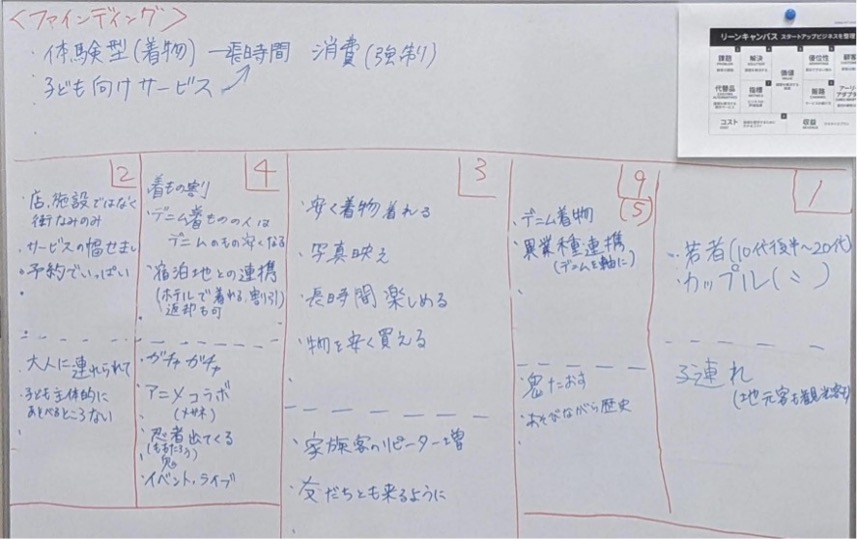 ＜ファインディング＞
・体験型(着物) → 長時間 消費(強制)
・子ども向けサービス
リーンキャンバス スタートアップビジネスを整理
課題
解決
価値
優位性
顧客
代替品
指標
販路
アーリー
アダプタ
コスト
収益
2
・店、施設ではなく
街なみのみ
・サービスの幅せまい
・予約でいっぱい
・大人に連れられて
・子ども主体的に
あそべるところない
4
・着もの割り
・デニム着ものの人は
デニムのもの安くなる
・宿泊地との連携
(ホテルで着れる、割り引)
返却も可
・ガチャガチャ
・アニメコラボ
・忍者出てくる
(ももたろう)
鬼
・イベント、ライブ
3
・安く着物着れる
・写真映え
・長時間楽しめる
・物を安く買える
・家族客のリピーター増
・友だちとも来るように
9
(5)
・デニム着物
・異業種連携
(デニムを軸に)
・鬼たおす
・あそびながら歴史
1
・若者(10代後半〜20代)
・カップル(〃)
・子連れ
(地元客も観光客も)